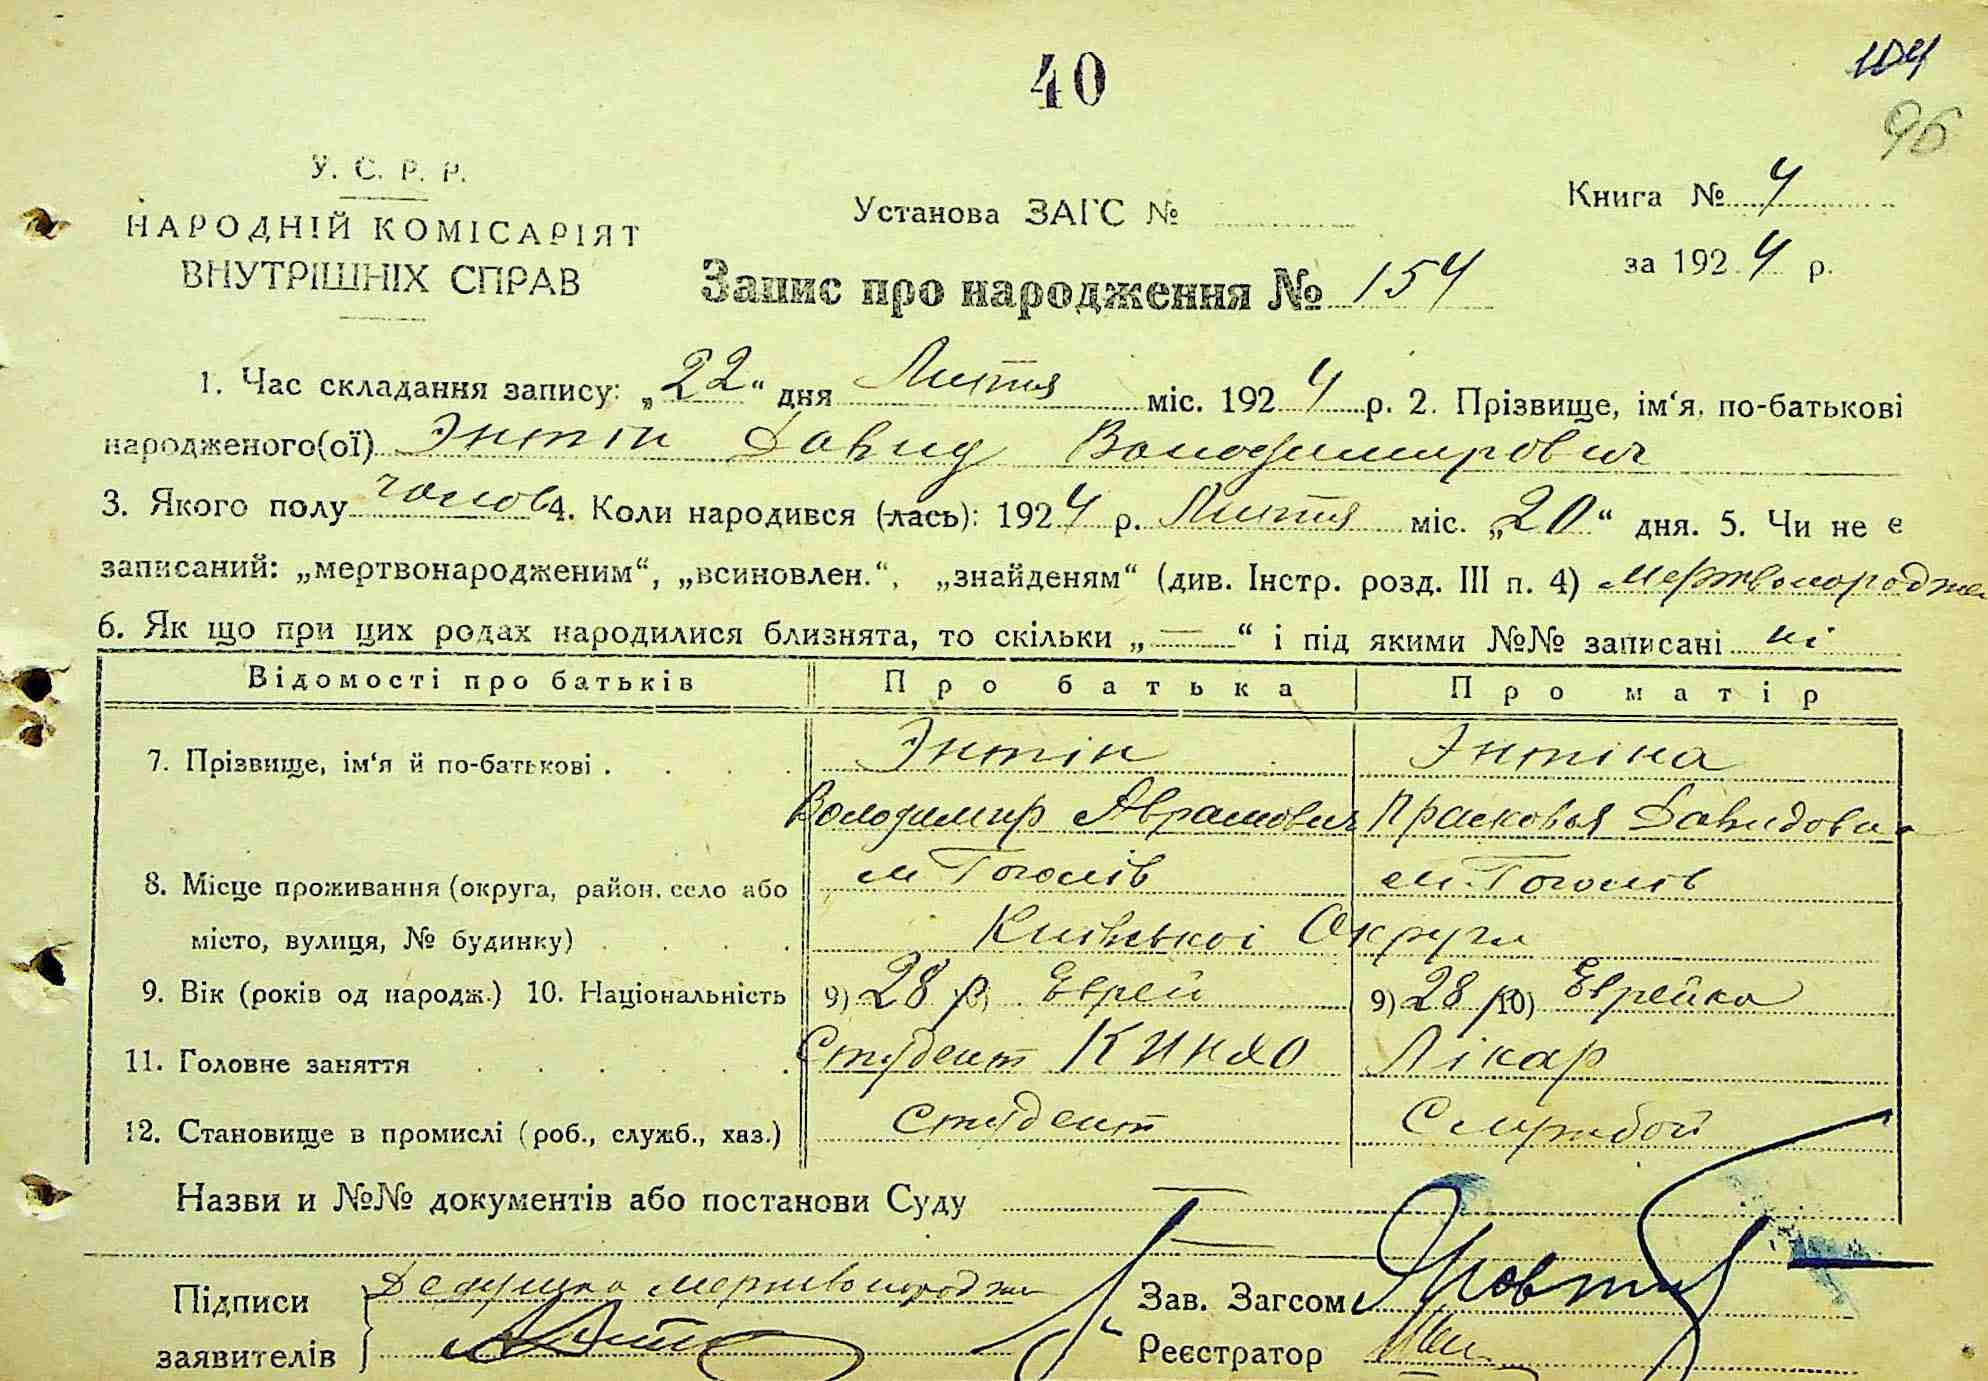 40
104
96
У. С. Р. Р.
НАРОДНІЙ КОМІСАРІЯТ
ВНУТРІШНІХ СПРАВ
Установа ЗАГС №
Книга № 4
за 1924 р.
Запис про народження № 154
1. Час складання запису: „22“ дня Лютня міс. 1924 р. 2. Прізвище, ім‘я, по-батькові
народженого(ої) Энтін Давид Володимирович
3. Якого полу чолов 4. Коли народився (лась): 1924 р. Лютня міс. „20“ дня. 5. Чи не є
записаний: „мертвонародженим“, „всиновлен.“, „знайденям“ (див. Інстр. розд. III п. 4) мертвонородже
6. Як що при цих родах народилися близнята, то скільки „—“ і під якими №№ записані ні
Відомості про батьків Про батька Про матір
7. Прізвище, ім‘я й по-батькові . Энтін Энтіна
Володимир Аврамович Прасковья Давидовна
8. Місце проживання (округа, район, село або м Гоголів м. Гоголів
місто, вулиця, № будинку) Київської Округи
9. Вік (років од народж.) 10. Національність 9) 28 р Еврей 9) 28 р 10) Еврейка
11. Головне заняття Студент КИНХО Лікар
12. Становище в промислі (роб., служб., хаз.) студент Службой
Назви и №№ документів або постанови Суду
Підписи Дедушка мертвонородж Зав. Загсом
заявителів Реєстратор